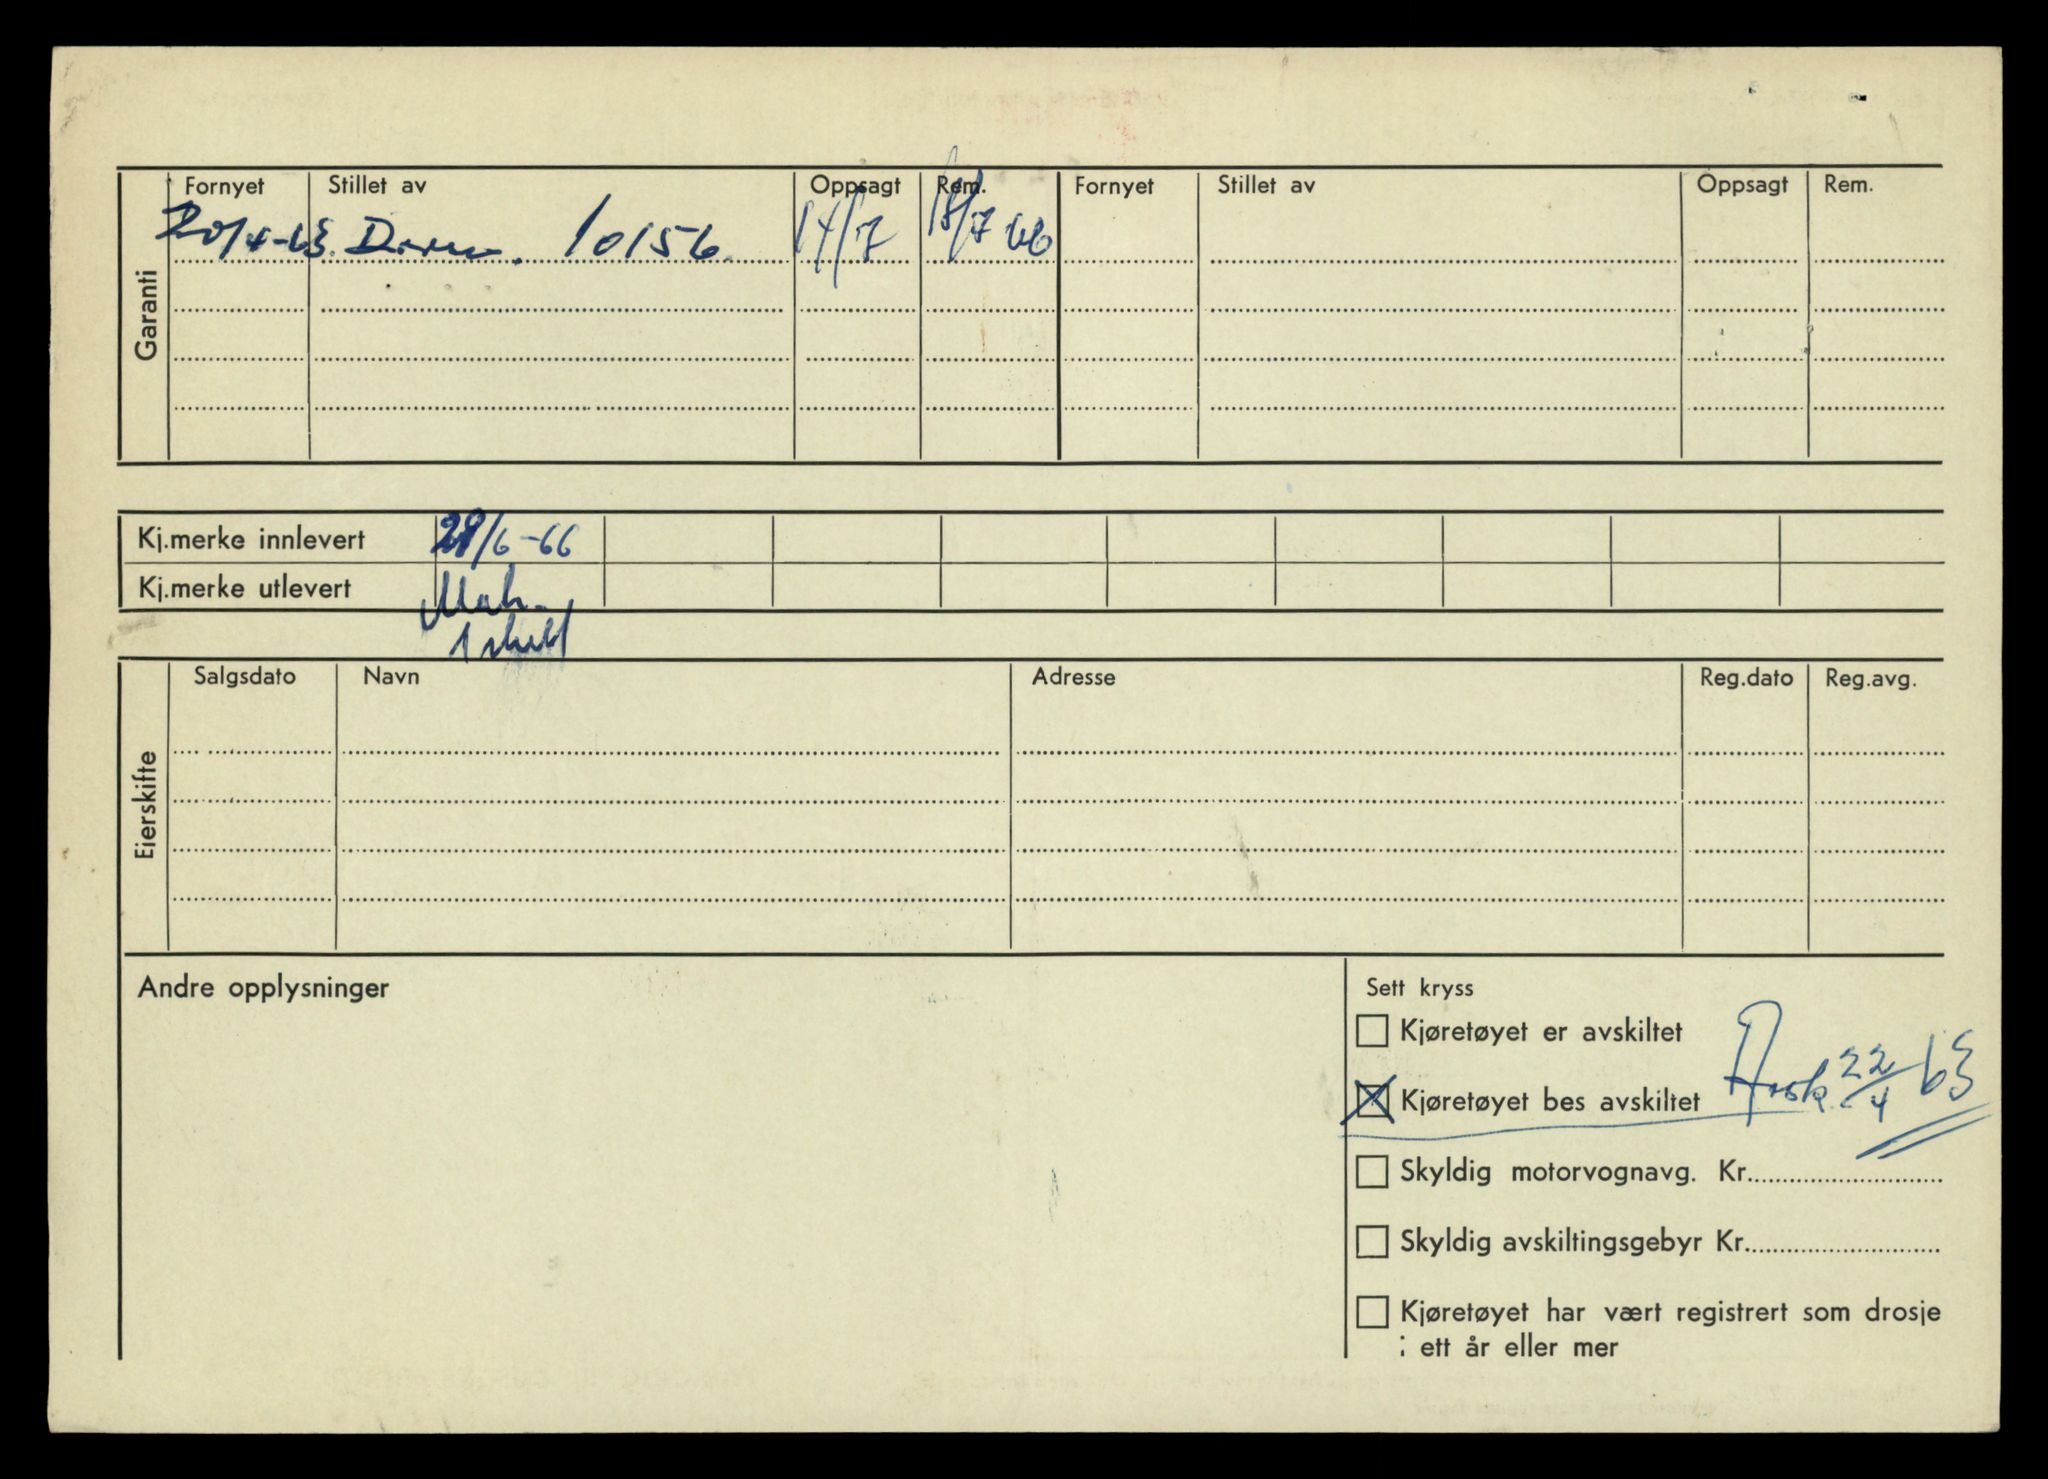 Garanti
Fornyet Stillet av Oppsagt Rem. Fornyet Stillet av Oppsagt Rem.
20/4-63. 10156. 14/7 18/7 66
Kj.merke innlevert 29/6-66
Kj.merke utlevert
Eierskifte
Salgsdato Navn Adresse Reg.dato Reg.avg.
Andre opplysninger
Sett kryss
Kjøretøyet er avskiltet
Kjøretøyet bes avskiltet 22/4 63
Skyldig motorvognavg. Kr.
Skyldig avskiltingsgebyr Kr.
Kjøretøyet har vært registrert som drosje
i ett år eller mer